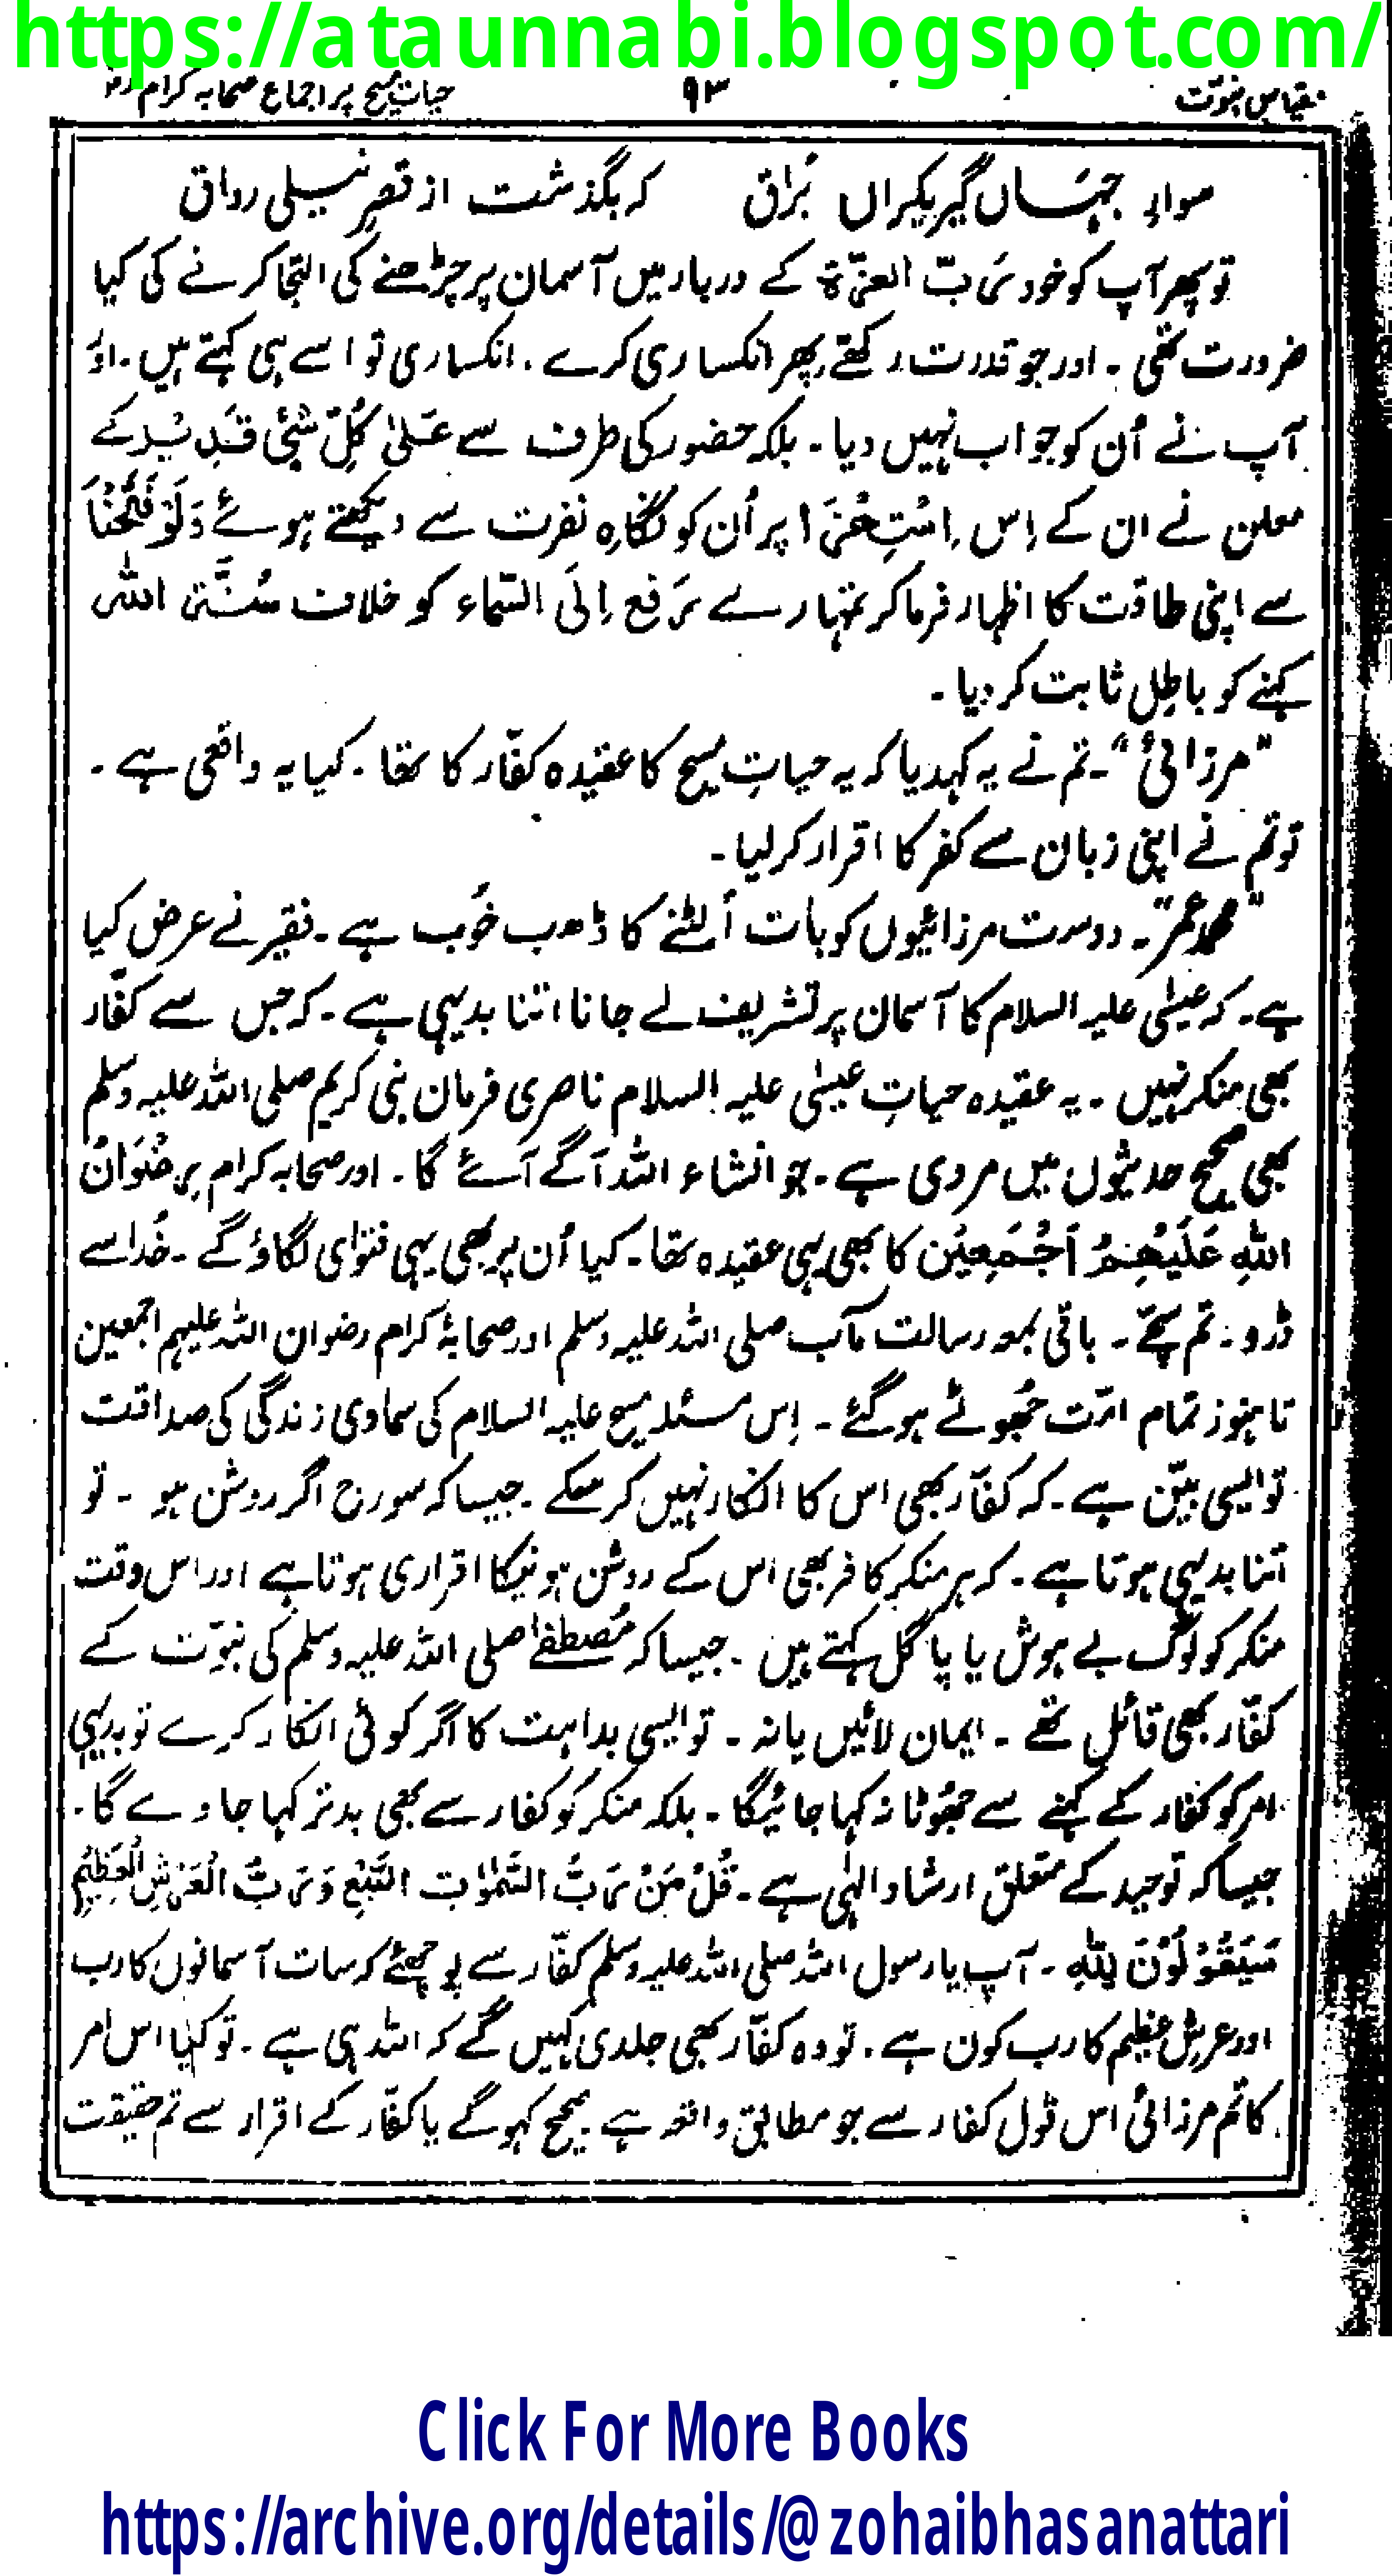 https://ataunnabi.blogspot.com/
مقیاس نبوت ۹۳ حیات مسیح پر اجماع صحابہ کرام رض
سوارِ جہاں گیر یکراں بُراق کہ بگذشت از قصرِ نیلی رواق
تو پھر آپ کو خود رَبّ العزّۃ کے دربار میں آسمان پر چڑھنے کی التجا کرنے کی کیا
ضرورت تھی ۔ اور جو قدرت رکھتے پھر انکساری کرے ۔ انکساری تو اسے ہی کہتے ہیں ۔ اوَر
آپ نے اُن کو جواب نہیں دیا ۔ بلکہ حضور کی طرف سے عَلیٰ کُلِّ شَیْءٍ قَدِیْر کے
معلن نے ان کے اِس اِسْتِہْزَا پر اُن کو نگاہِ نفرت سے دیکھتے ہوئے وَلَوْ فَتَحْنَا
سے اپنی طاقت کا اظہار فرما کر تمہارے رَفع اِلَی السَّماء کو خلاف سُنَّۃ اللہ
کہنے کو باطِل ثابت کر دیا ۔
”مرزائی“ ۔ تم نے یہ کہدیا کہ یہ حیاتِ مسیح کا عقیدہ کفّار کا تھا ۔ کیا یہ واقعی ہے ۔
تو تم نے اپنی زبان سے کفر کا اقرار کر لیا ۔
”محمد عمر“ ۔ دوست مرزائیوں کو بات اُلٹنے کا ڈھب خُوب ہے ۔ فقیر نے عرض کیا
ہے ۔ کہ عیسٰی علیہ السلام کا آسمان پر تشریف لے جانا اتنا بدیہی ہے ۔ کہ جس سے کفّار
بھی منکر نہیں ۔ یہ عقیدہ حیاتِ عیسٰی علیہ السلام ناصری فرمان نبی کریم صلی اللہ علیہ وسلم
بھی صحیح حدیثوں میں مروی ہے ۔ جو انشاء اللہ آگے آئے گا ۔ اور صحابہ کرام رِضْوَانُ
اللهِ عَلَيْهِمْ اَجْمَعِيْن کا بھی یہی عقیدہ تھا ۔ کیا اُن پر بھی یہی فتوٰی لگاؤ گے ۔ خُدا سے
ڈرو ۔ تم سچّے ۔ باقی بمعہ رسالت مآب صلی اللہ علیہ وسلم اور صحابۂ کرام رضوان اللہ علیہم اجمعین
تا ہنوز تمام امّت جُھوٹے ہو گئے ۔ اِس مسئلہ مسیح علیہ السلام کی سماوی زندگی کی صداقت
تو ایسی بیّن ہے ۔ کہ کفّار بھی اس کا انکار نہیں کر سکے ۔ جیسا کہ سورج اگر روشن ہو ۔ تو
اتنا بدیہی ہوتا ہے ۔ کہ ہر منکر کافر بھی اس کے روشن ہونیکا اقراری ہوتا ہے اور اس وقت
منکر کو لوگ بے ہوش یا پاگل کہتے ہیں ۔ جیسا کہ مُصطفےٰ صلی اللہ علیہ وسلم کی نبوّت کے
کفّار بھی قائل تھے ۔ ایمان لائیں یا نہ ۔ تو ایسی بداہت کا اگر کوئی انکار کرے تو بدیہی
امر کو کفار کے کہنے سے جھُوٹا نہ کہا جائیگا ۔ بلکہ منکر کو کفار سے بھی بدتر کہا جاوے گا ۔
جیسا کہ توحید کے متعلق ارشادِ الٰہی ہے ۔ قُلْ مَنْ رَبُّ السَّمٰوٰتِ السَّبْعِ وَرَبُّ الْعَرْشِ الْعَظِيْمِ
سَيَقُوْلُوْنَ لِلّٰهِ ۔ آپ یا رسول اللہ صلی اللہ علیہ وسلم کفّار سے پوچھئے کہ سات آسمانوں کا رب
اور عرش عظیم کا رب کون ہے ۔ تو وہ کفّار بھی جلدی کہیں گے کہ اللہ ہی ہے ۔ تو کیا اس امر
کا تم مرزائی اس قول کفار سے جو مطابق واقعہ ہے صحیح کہو گے یا کفّار کے اقرار سے تم حقیقت
Click For More Books
https://archive.org/details/@zohaibhasanattari